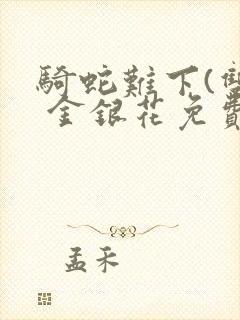 騎蛇難下(雙
金銀花免費
孟禾